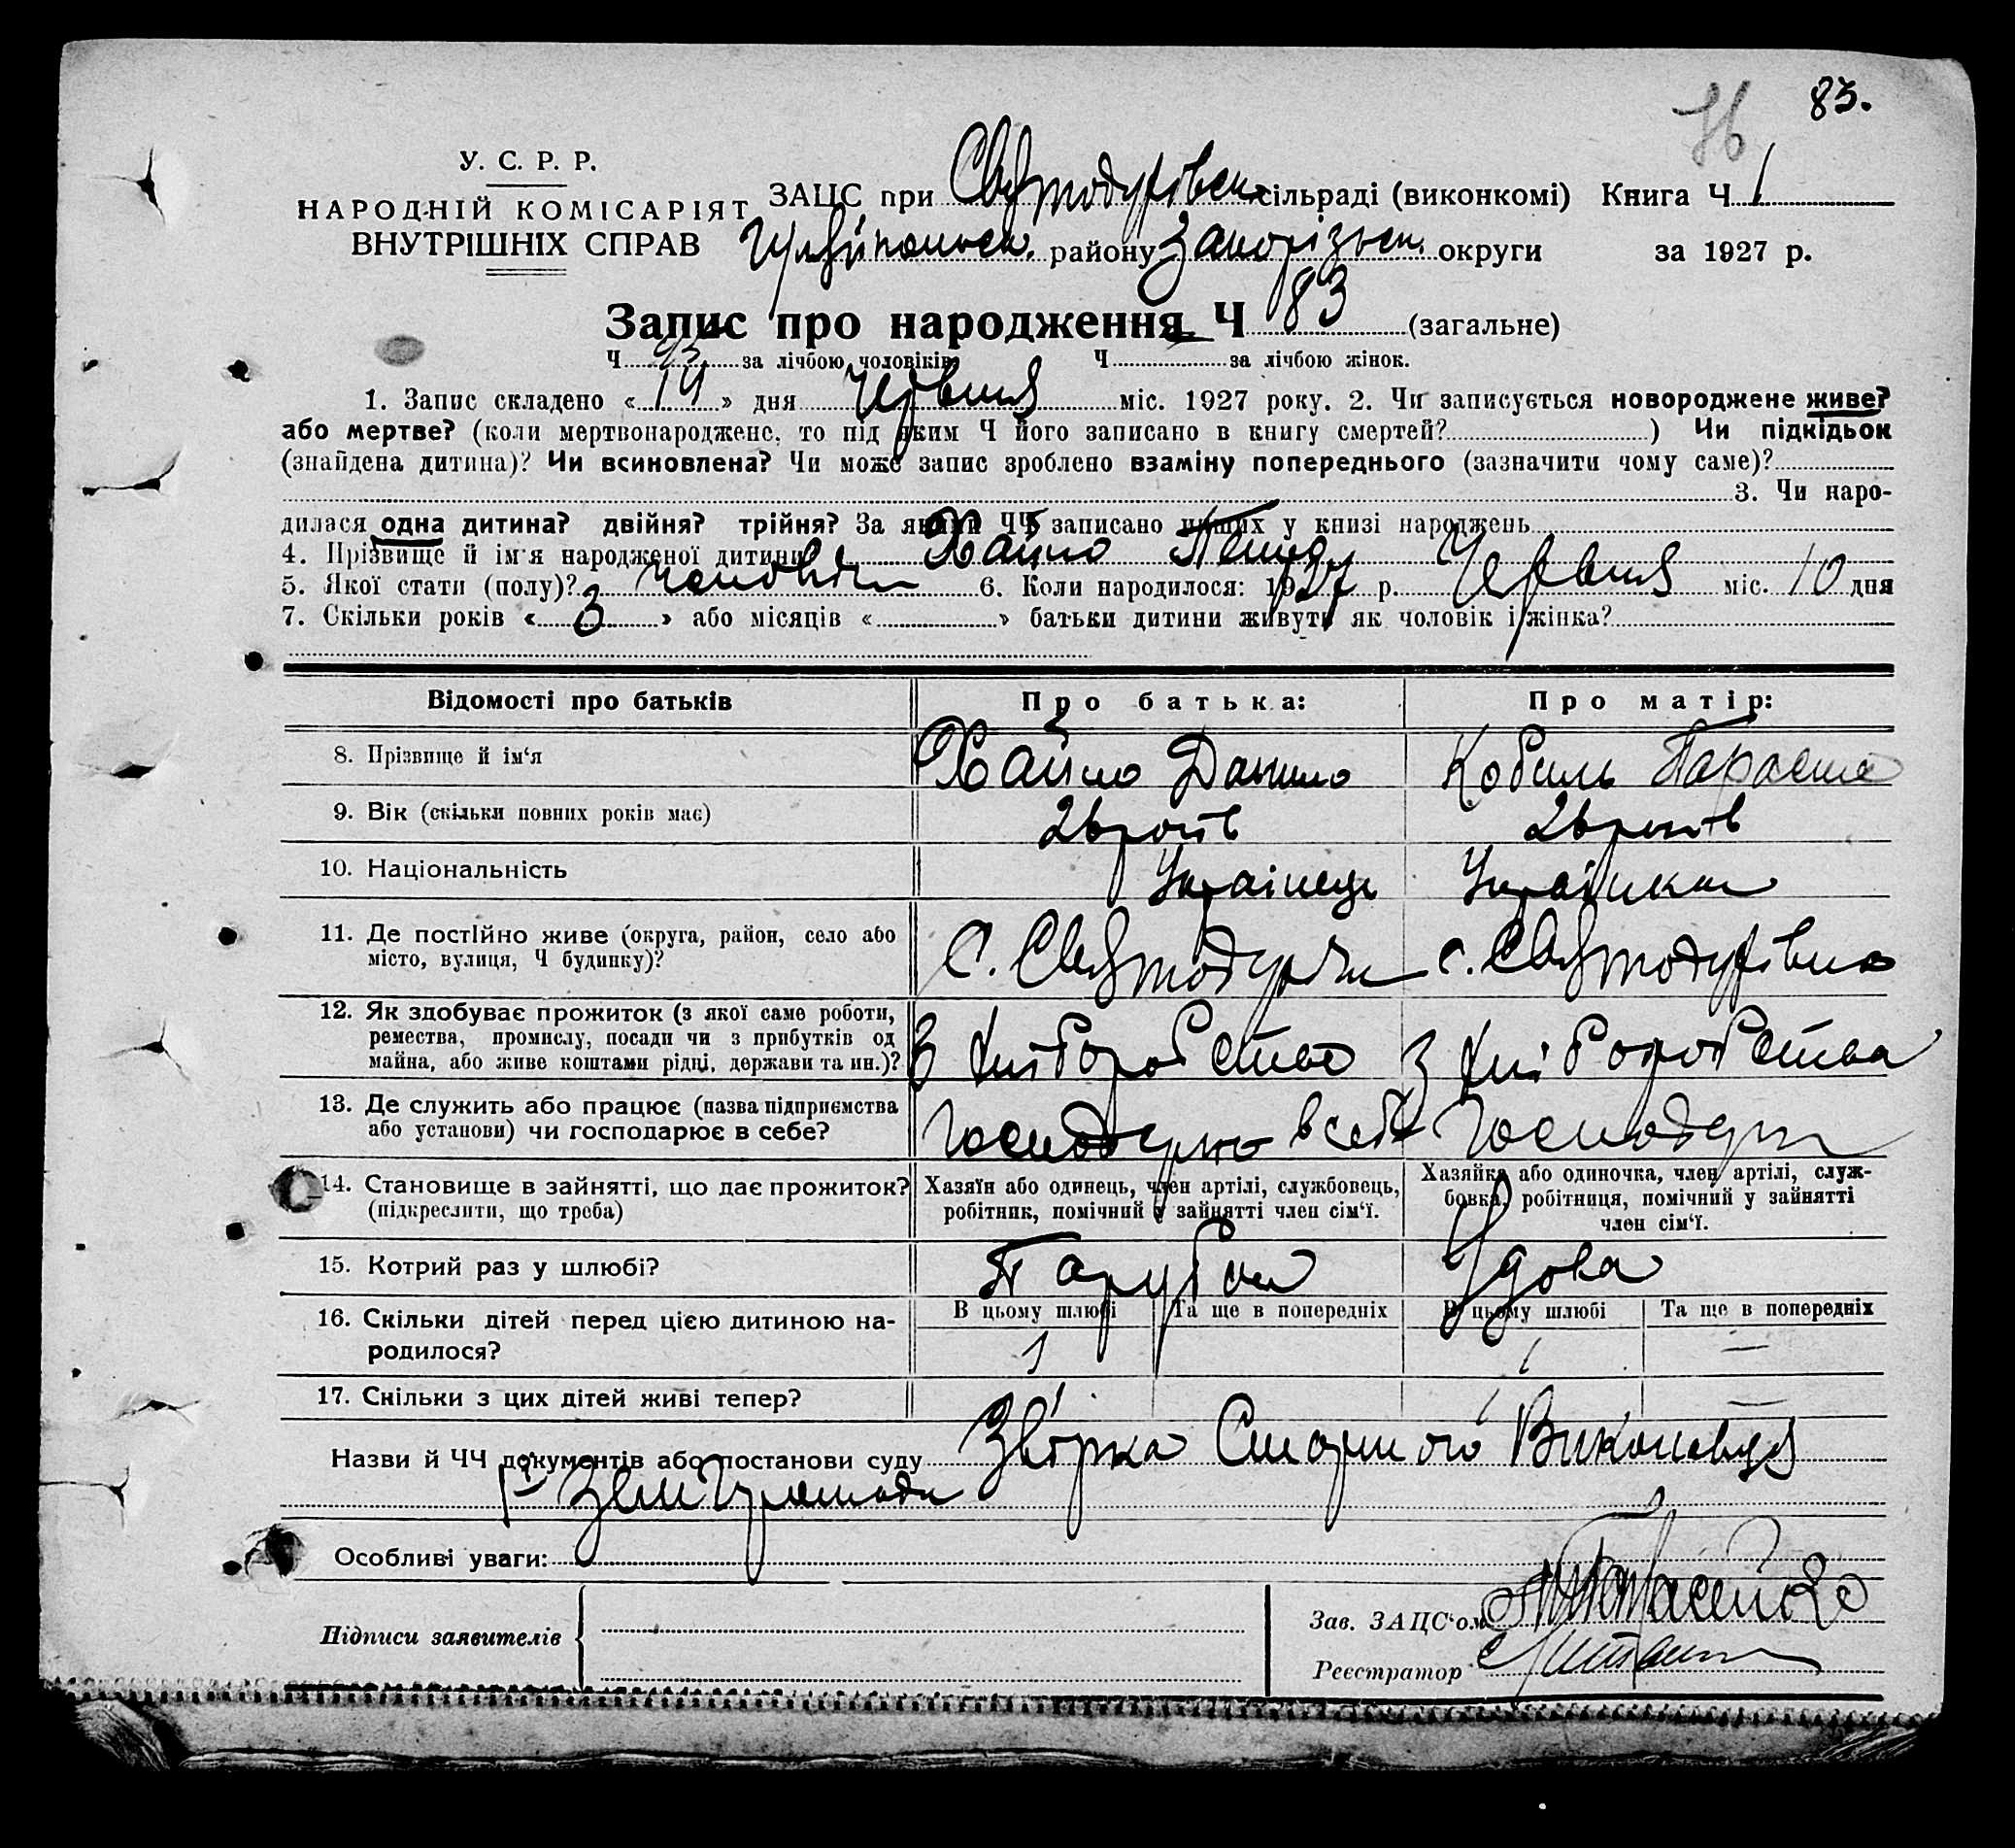 83.
У. С. Р. Р.
НАРОДНІЙ КОМІСАРІЯТ
ВНУТРІШНІХ СПРАВ
ЗАЦС при Святодухівськ сільраді (виконкомі) Книга Ч 1
Гуляйпольськ. району Запорізьк. округи за 1927 р.
Запис про народження Ч 83 (загальне)
Ч за лічбою чоловіків Ч за лічбою жінок.
1. Запис складено « 14 » дня Червня міс. 1927 року. 2. Чи записується новороджене живе?
або мертве? (коли мертвонароджене, то під яким Ч його записано в книгу смертей? ) Чи підкідьок
(знайдена дитина)? Чи всиновлена? Чи може запис зроблено взаміну попереднього (зазначити чому саме)?
3. Чи наро-
дилася одна дитина? двійня? трійня? За якими ЧЧ записано инших у книзі народжень
4. Прізвище й ім'я народженої дитини Хайло
5. Якої стати (полу)? чоловіч 6. Коли народилося: 1927 р. Червня міс. 10 дня
7. Скільки років « 3 » або місяців « » батьки дитини живуть як чоловік і жінка?
Відомості про батьків Про батька: Про матір:
8. Прізвище й ім'я Хайло Данило Кобиль Параска
9. Вік (скільки повних років має) 26 років 26 років
10. Національність Українець Українка
11. Де постійно живе (округа, район, село або
місто, вулиця, Ч будинку)?
с. Святодухівка с. Святодухівка
12. Як здобуває прожиток (з якої саме роботи,
ремества, промислу, посади чи з прибутків од
майна, або живе коштами рідні, держави та ин.)?
З хліборобства З хліборобства
13. Де служить або працює (назва підприємства
або установи) чи господарює в себе?
Господарює в себе Господарює
14. Становище в зайнятті, що дає прожиток?
(підкреслити, що треба)
Хазяїн або одинець, член артілі, службовець,
робітник, помічний у зайнятті член сім'ї.
Хазяйка або одиночка, член артілі, служ-
бовка, робітниця, помічний у зайнятті
член сім'ї.
15. Котрий раз у шлюбі? Парубок Удова
16. Скільки дітей перед цією дитиною на-
родилося?
В цьому шлюбі Та ще в попередніх В цьому шлюбі Та ще в попередніх
1 1 —
17. Скільки з цих дітей живі тепер? 1 1 —
Назви й ЧЧ документів або постанови суду Звірка Сторного Виконавця
Зем Громади
Особливі уваги:
Підписи заявителів
Зав. ЗАЦС'ом
Реєстратор